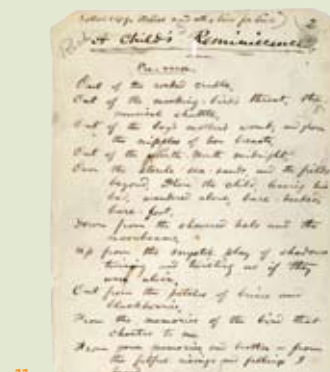 A Child's Reminiscence.
Pre-verse.
Out of the rocked cradle,
Out of the mocking-bird's throat, the
musical shuttle,
Out of the boy's mother's womb, and from
the nipples of her breasts,
Out of the Ninth Month midnight
Over the sterile sea-sands, and the fields
beyond, Where the child, leaving his
bed, wandered alone, bare-headed,
bare foot,
Down from the showered halo and the
moonbeams,
Up from the mystic play of shadows
twining and twisting as if they
were alive,
Out from the patches of briars and
blackberries,
From the memories of the bird that
chanted to me
From your memories, sad brother – from
the fitful risings and fallings I